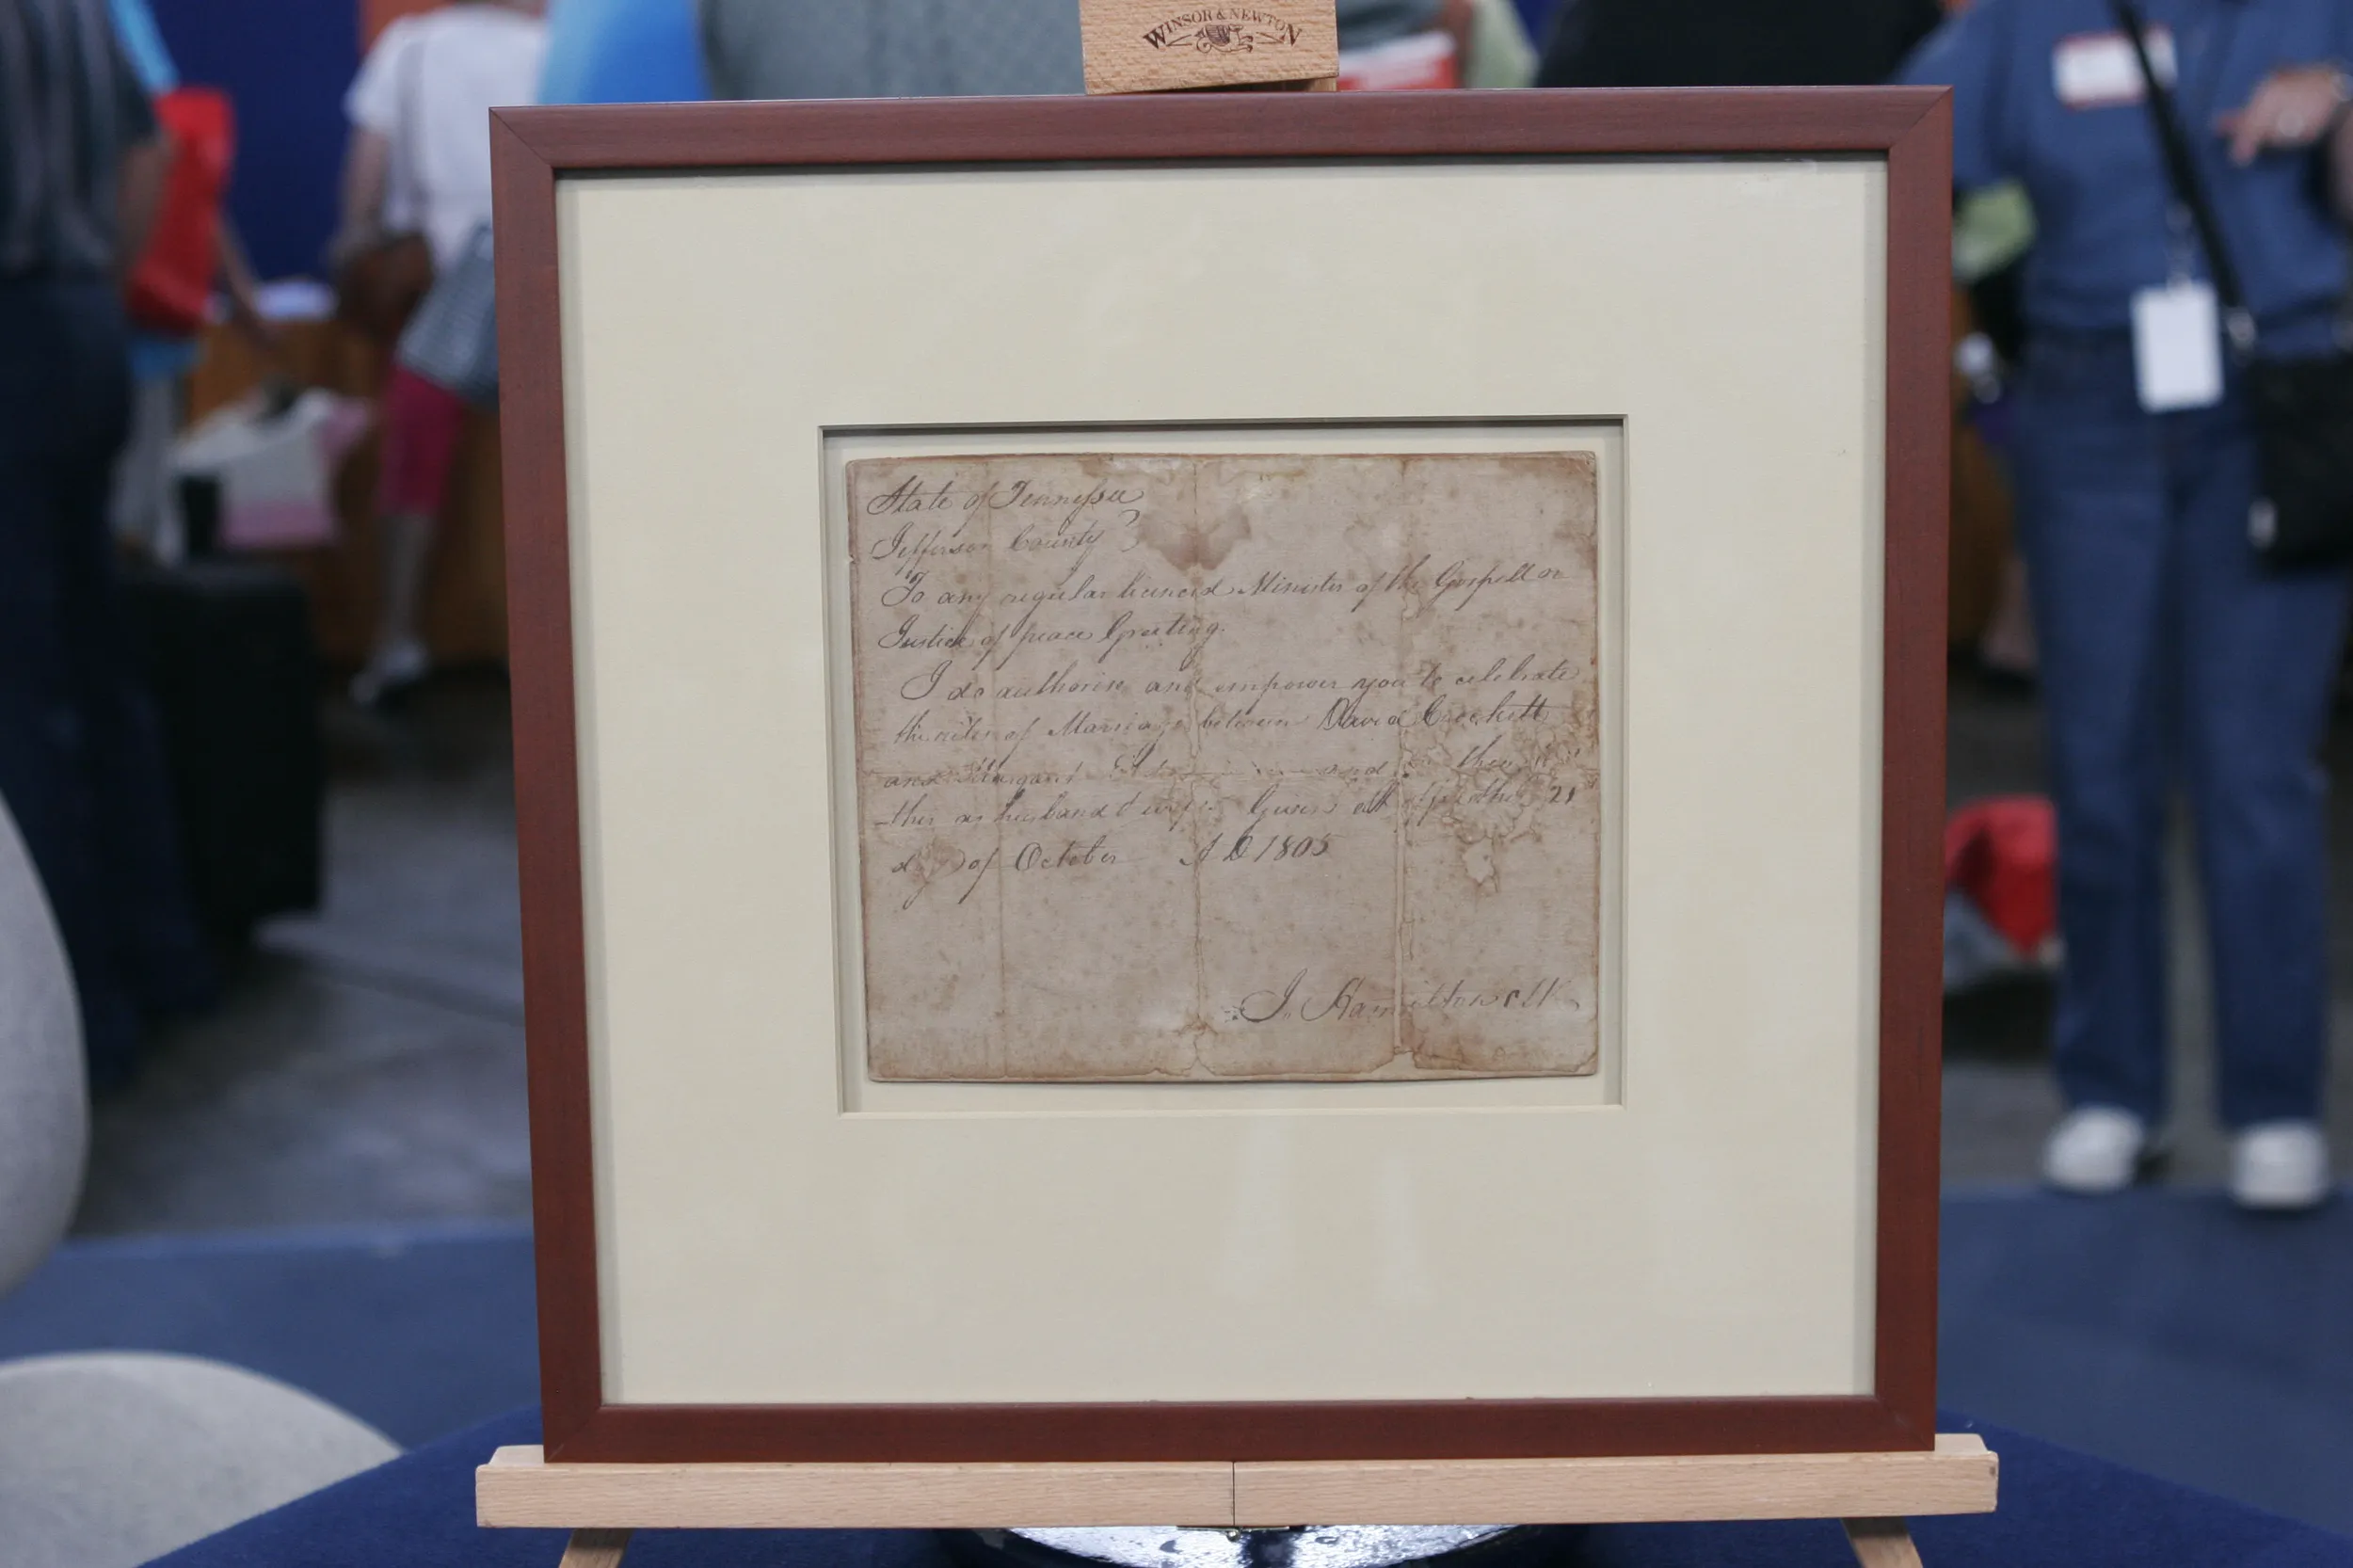 WINSOR & NEWTON
State of Tennessee
Jefferson County
To any regular licenced Minister of the Gospell or
Justice of peace Greeting.
I do authorise and empower you to celebrate
the rites of Marriage between David Crockett
and Margaret and them
ther as husband & wife Given at office the 21
day of October A D 1805
J. Hamilton Clk